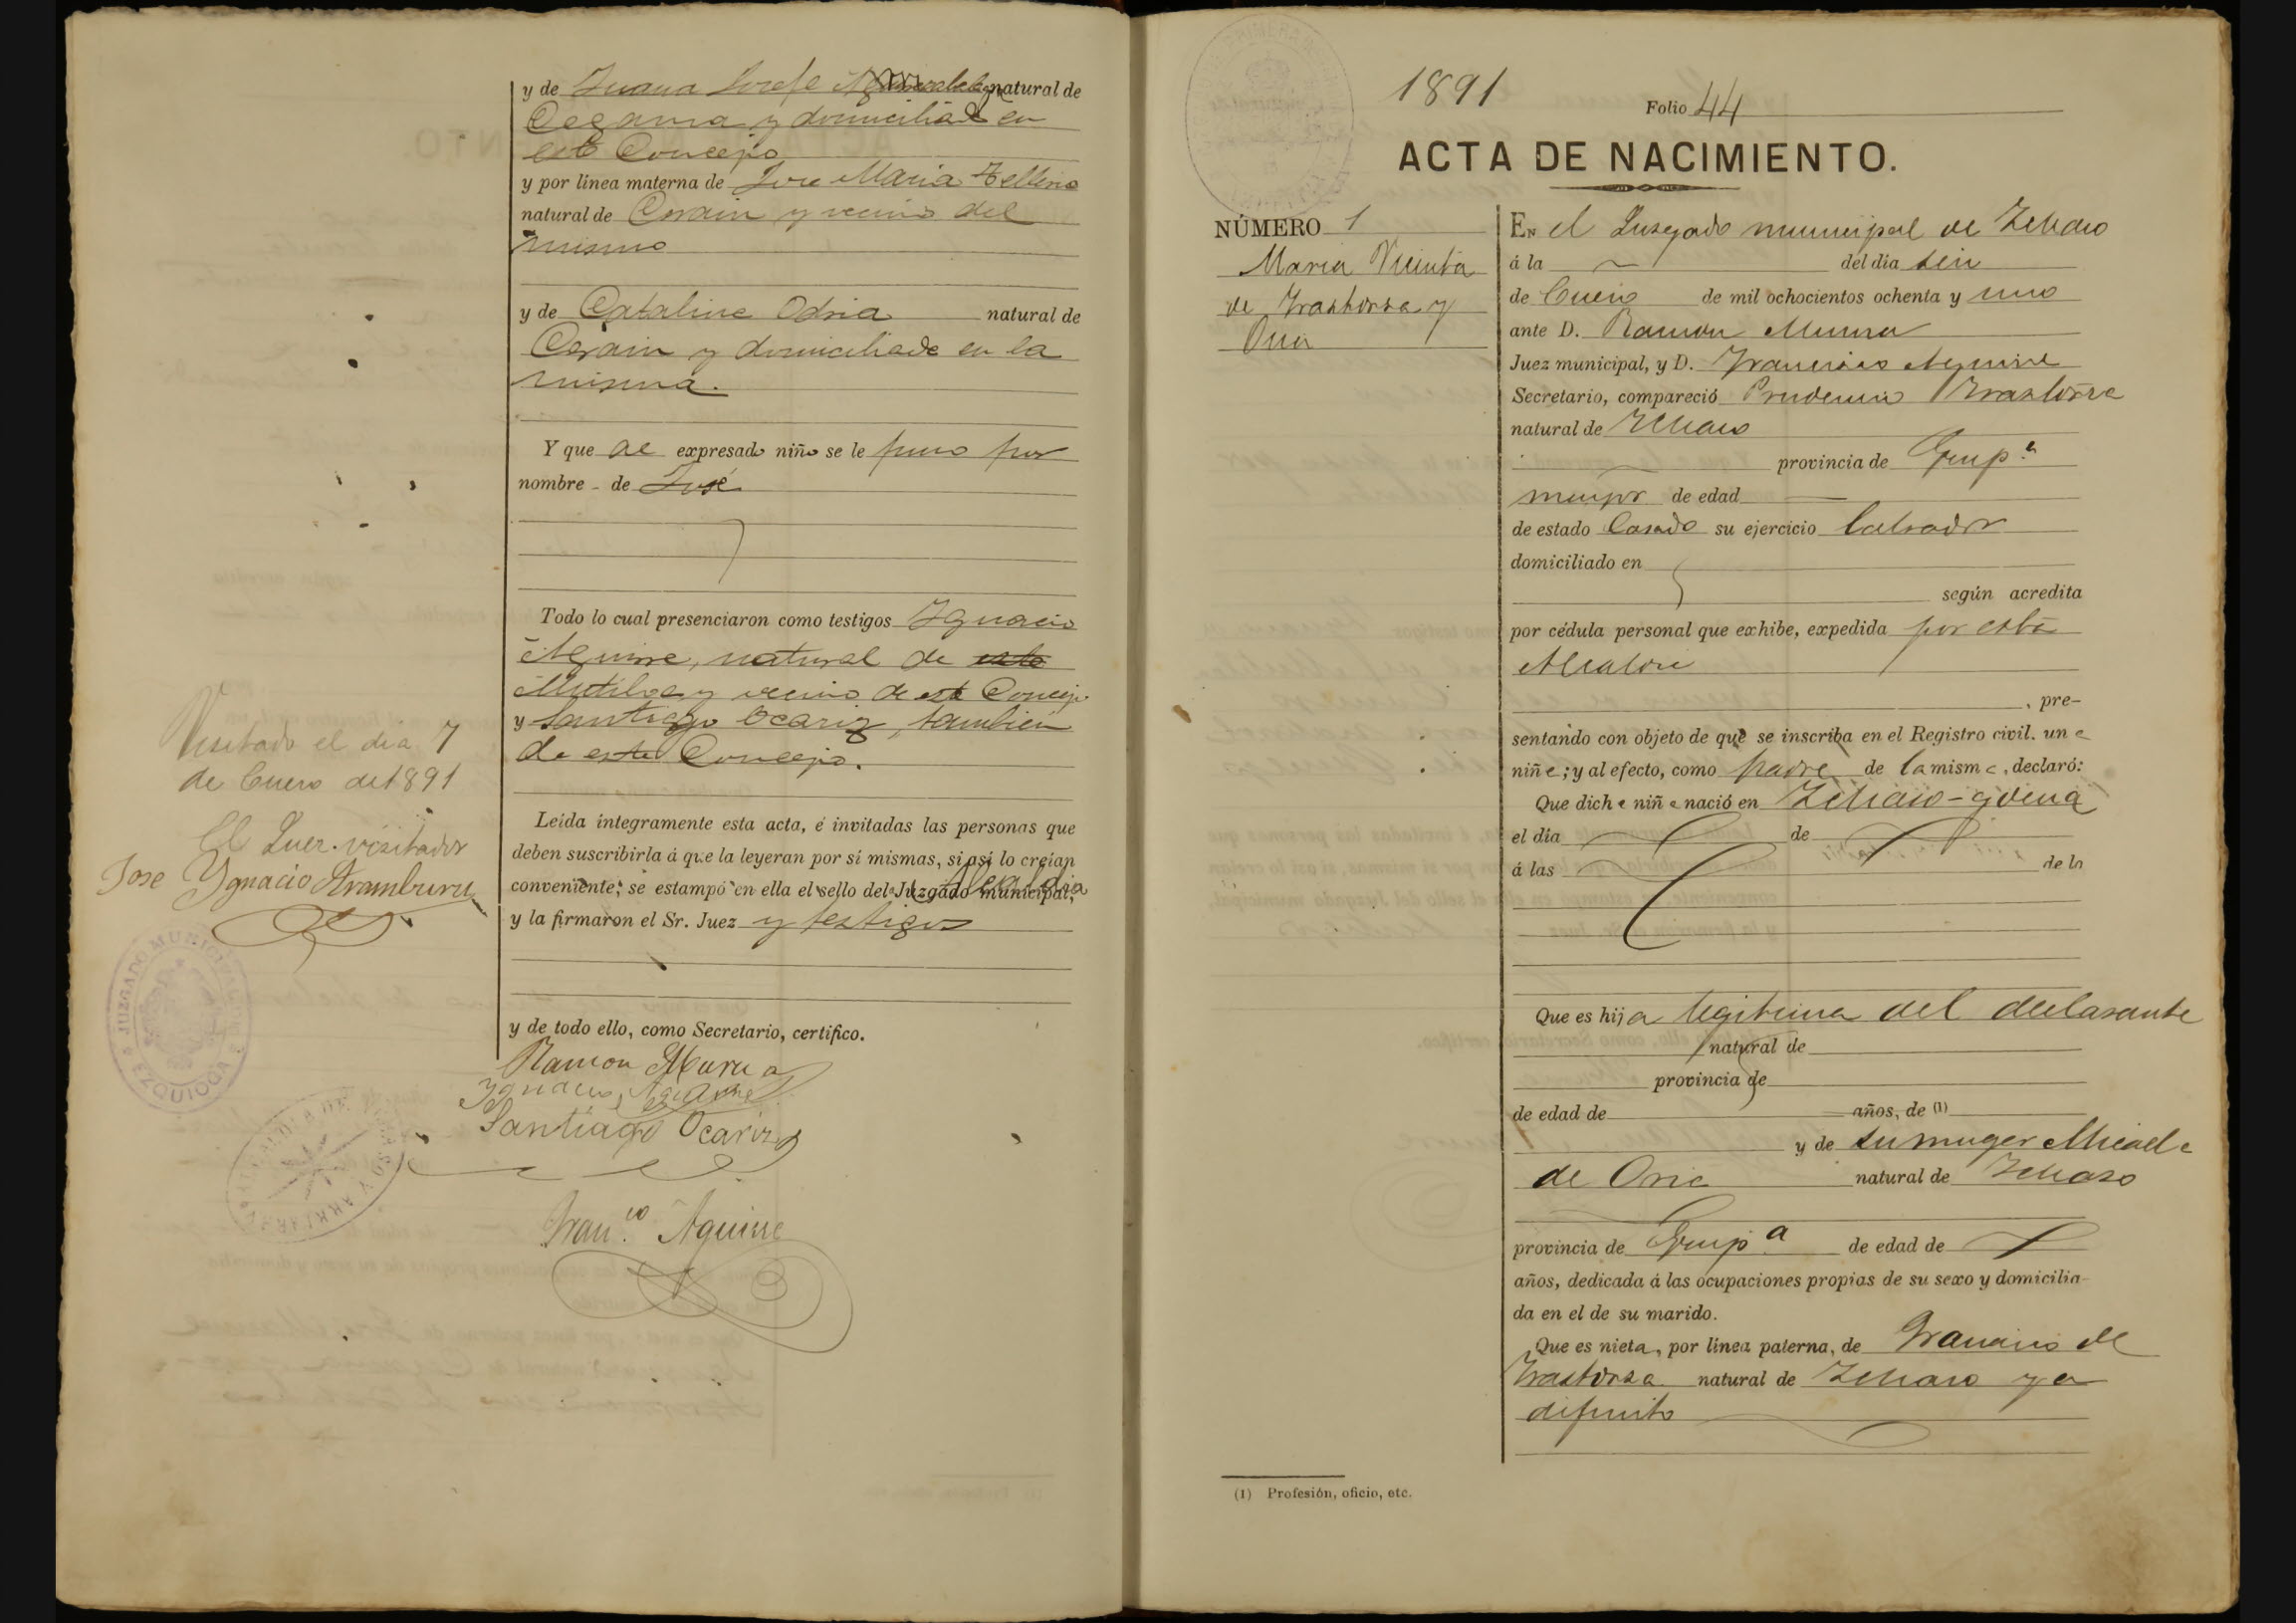 y de Juana Josefa natural de
Cegama y domiciliada en
este Concejo
y por línea materna de Jose Maria Telleria
natural de Cerain y vecino del
mismo
y de Catalina Odria natural de
Cerain y domiciliada en la
misma.
Y que al expresado niño se le puso por
nombre de José
Todo lo cual presenciaron como testigos Ygnacio
Aguirre, natural de este
Mutiloa y vecino de este Concejo
y Santiago Ocariz, también
de este Concejo.
Leída íntegramente esta acta, é invitadas las personas que
deben suscribirla á que la leyeran por sí mismas, si así lo creían
conveniente; se estampó en ella el sello del Juzgado municipal, Alcaldia
y la firmaron el Sr. Juez y testigos
y de todo ello, como Secretario, certifico.
Ramon Murua
Ygnacio Aguirre
Santiago Ocariz
Fran.co Aguirre
Visitado el dia 7
de Enero de 1891
El Juez visitador
Jose Ygnacio Aramburu
JUZGADO MUNICIPAL DE
EZQUIOGA
1891
Folio 44
ACTA DE NACIMIENTO.
NÚMERO 1
Maria Vicenta
de Yrastorza y
Oria
En el Juzgado municipal de Ichaso
á la del día seis
de Enero de mil ochocientos ochenta y uno
ante D. Ramon Murua
Juez municipal, y D. Francisco Aguirre
Secretario, compareció Prudencio Yrastorza
natural de Ichaso
provincia de Guip.a
mayor de edad
de estado Casado su ejercicio labrador
domiciliado en
según acredita
por cédula personal que exhibe, expedida por esta
Alcaldia
, pre-
sentando con objeto de que se inscriba en el Registro civil. una
niña; y al efecto, como padre de la misma, declaró:
Que dicha niña nació en Ichaso-goena
el día de
á las de la
Que es hija legitima del declarante
natural de
provincia de
de edad de años, de (1)
y de su muger Micaela
de Oria natural de Ichaso
provincia de Guip.a de edad de
años, dedicada á las ocupaciones propias de su sexo y domicilia-
da en el de su marido.
Que es nieta, por línea paterna, de Francisco de
Yrastorza natural de Ichaso ya
difunto
(1) Profesión, oficio, etc.